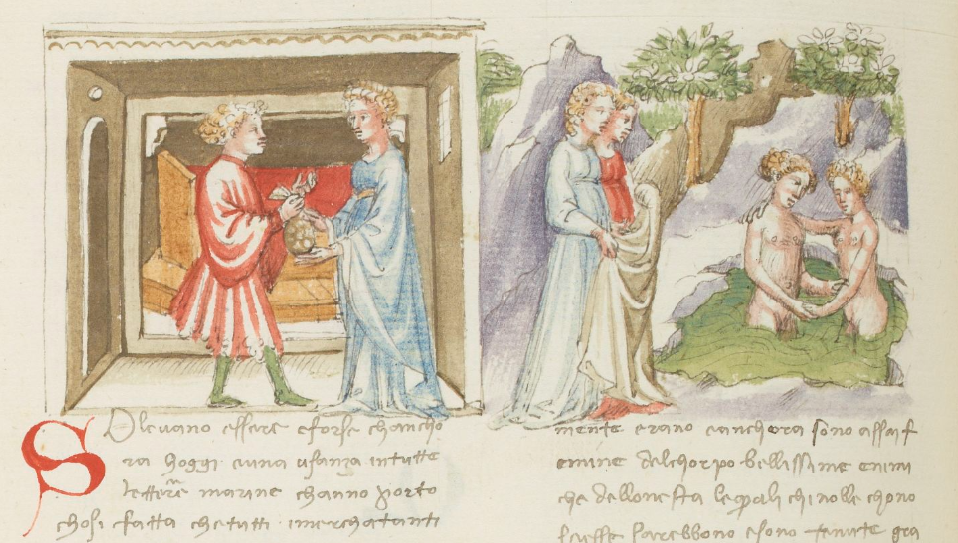 Solevano essere e forse chancho
ra hoggi e una usanza in tutte
le tterre marine channo porto
chosi fatta che tutti i merchatanti
mente erano e anchora sono assai f
emine del chorpo bellissime e nimi
che dell onesta le quali chi no lle chono
sciesse sarebbono e sono tenute gra